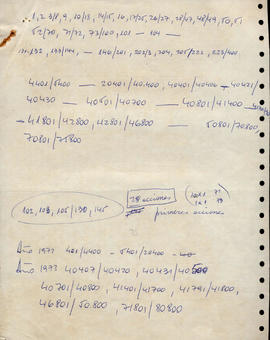 1, 2, 3/8, 9, 10/13, 14/15, 16, 17/25, 26/27, 28/47, 48/49, 50, 51
52/70, 71/72, 73/100, 101 — 104 —
132, 133/144, — 146/201, 202/3, 204, 205/222, 223/400
4401/5400 — 20401/40.400, 40401/40406 — 40421/
40430 — 40501/40700 — 40801/41400 —
— 41801/42800, 42801/46800 — 50801/70800
70801/75800
28 acciones
102, 103, 105/130, 145
primeras acciones
Año 1972 401/4400 — 5401/20400 —
Año 1973 40407/40420, 40431/40500
40701/40800, 41401/41700, 41791/41800,
46801/50.800, 71801/80800